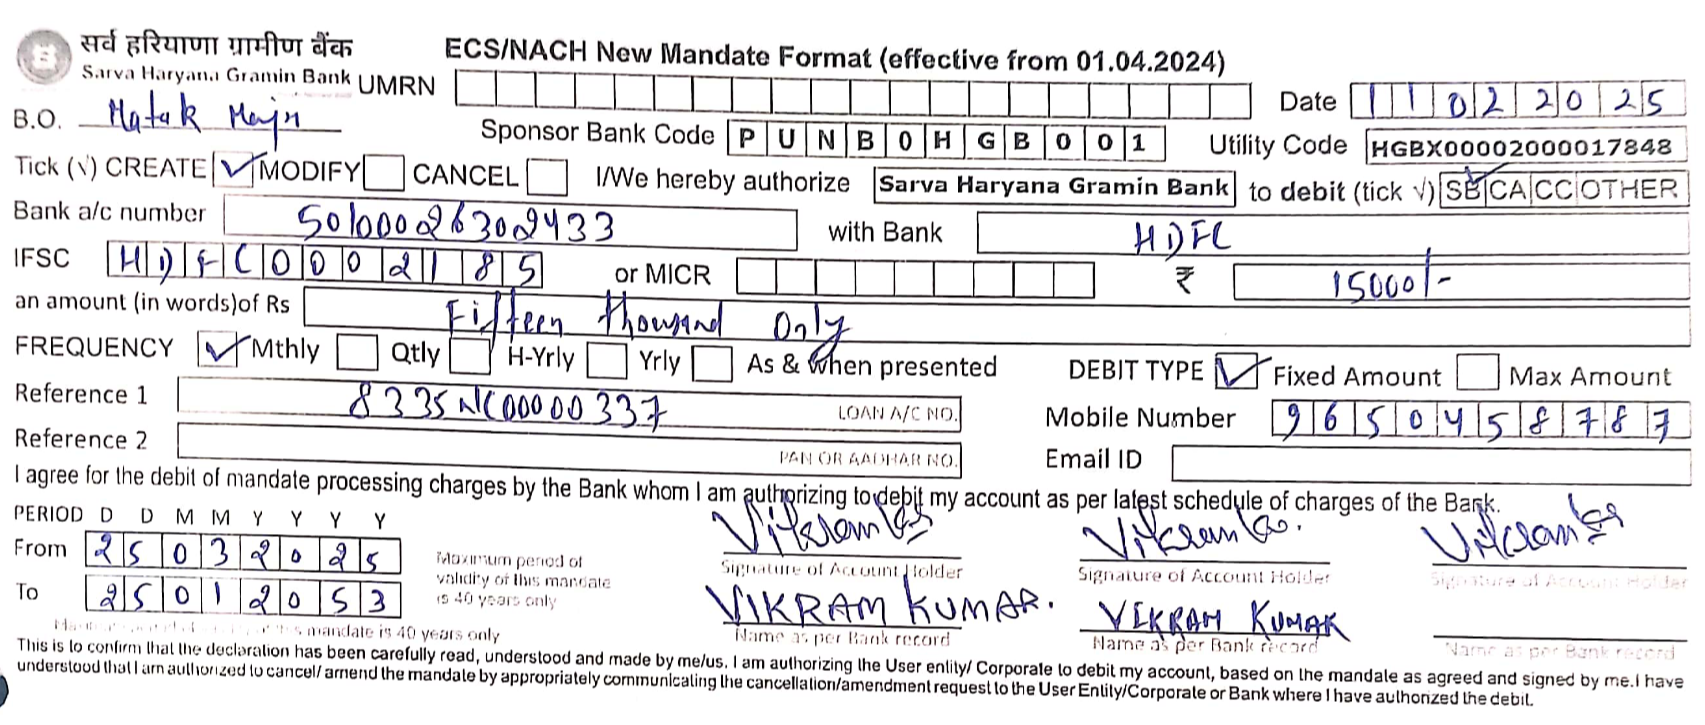 सर्व हरियाणा ग्रामीण बैंक
Sarva Haryana Gramin Bank
ECS/NACH New Mandate Format (effective from 01.04.2024)
UMRN
Date 11022025
B.O. Hatak Majri
Sponsor Bank Code PUNB0HGB001
Utility Code HGBX00002000017848
Tick (√) CREATE ✓ MODIFY CANCEL I/We hereby authorize Sarva Haryana Gramin Bank to debit (tick √) SB ✓ CA CC OTHER
Bank a/c number 50100026302433 with Bank HDFC
IFSC HDFC0002185 or MICR ₹ 15000/-
an amount (in words)of Rs Fifteen thousand Only
FREQUENCY ✓ Mthly Qtly H-Yrly Yrly As & when presented DEBIT TYPE ✓ Fixed Amount Max Amount
Reference 1 8335NC00000337 LOAN A/C NO. Mobile Number 9650458787
Reference 2 PAN OR AADHAR NO. Email ID
I agree for the debit of mandate processing charges by the Bank whom I am authorizing to debit my account as per latest schedule of charges of the Bank.
PERIOD D D M M Y Y Y Y
From 25032025
To 25012053
Maximum period of
validity of this mandate
is 40 years only
Vikram Kumar Vikram Kumar Vikram Kumar
Signature of Account Holder Signature of Account Holder Signature of Account Holder
VIKRAM KUMAR. VIKRAM KUMAR
Name as per Bank record Name as per Bank record Name as per Bank record
this mandate is 40 years only
This is to confirm that the declaration has been carefully read, understood and made by me/us. I am authorizing the User entity/ Corporate to debit my account, based on the mandate as agreed and signed by me.I have
understood that I am authorized to cancel/ amend the mandate by appropriately communicating the cancellation/amendment request to the User Entity/Corporate or Bank where I have authorized the debit.